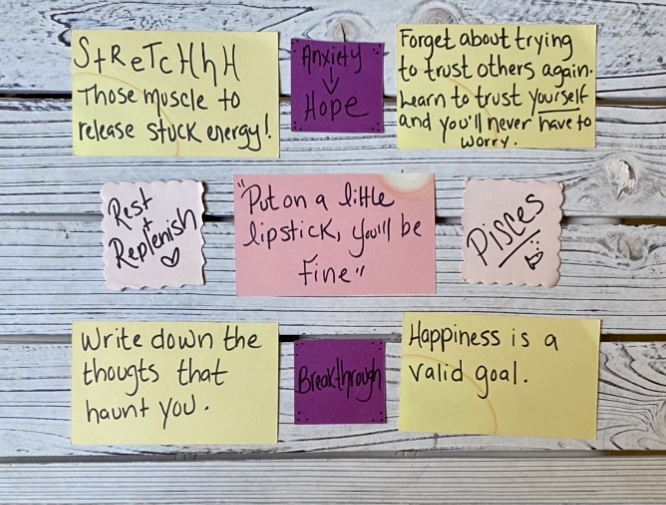 StReTcHhH
Those muscle to
release stuck energy!
Anxiety
↓
Hope
Forget about trying
to trust others again.
Learn to trust yourself
and you'll never have to
worry.
Rest
+
Replenish
♡
"Put on a little
lipstick, you'll be
fine"
Pisces
Write down the
thougts that
haunt you.
Breakthrough
Happiness is a
valid goal.